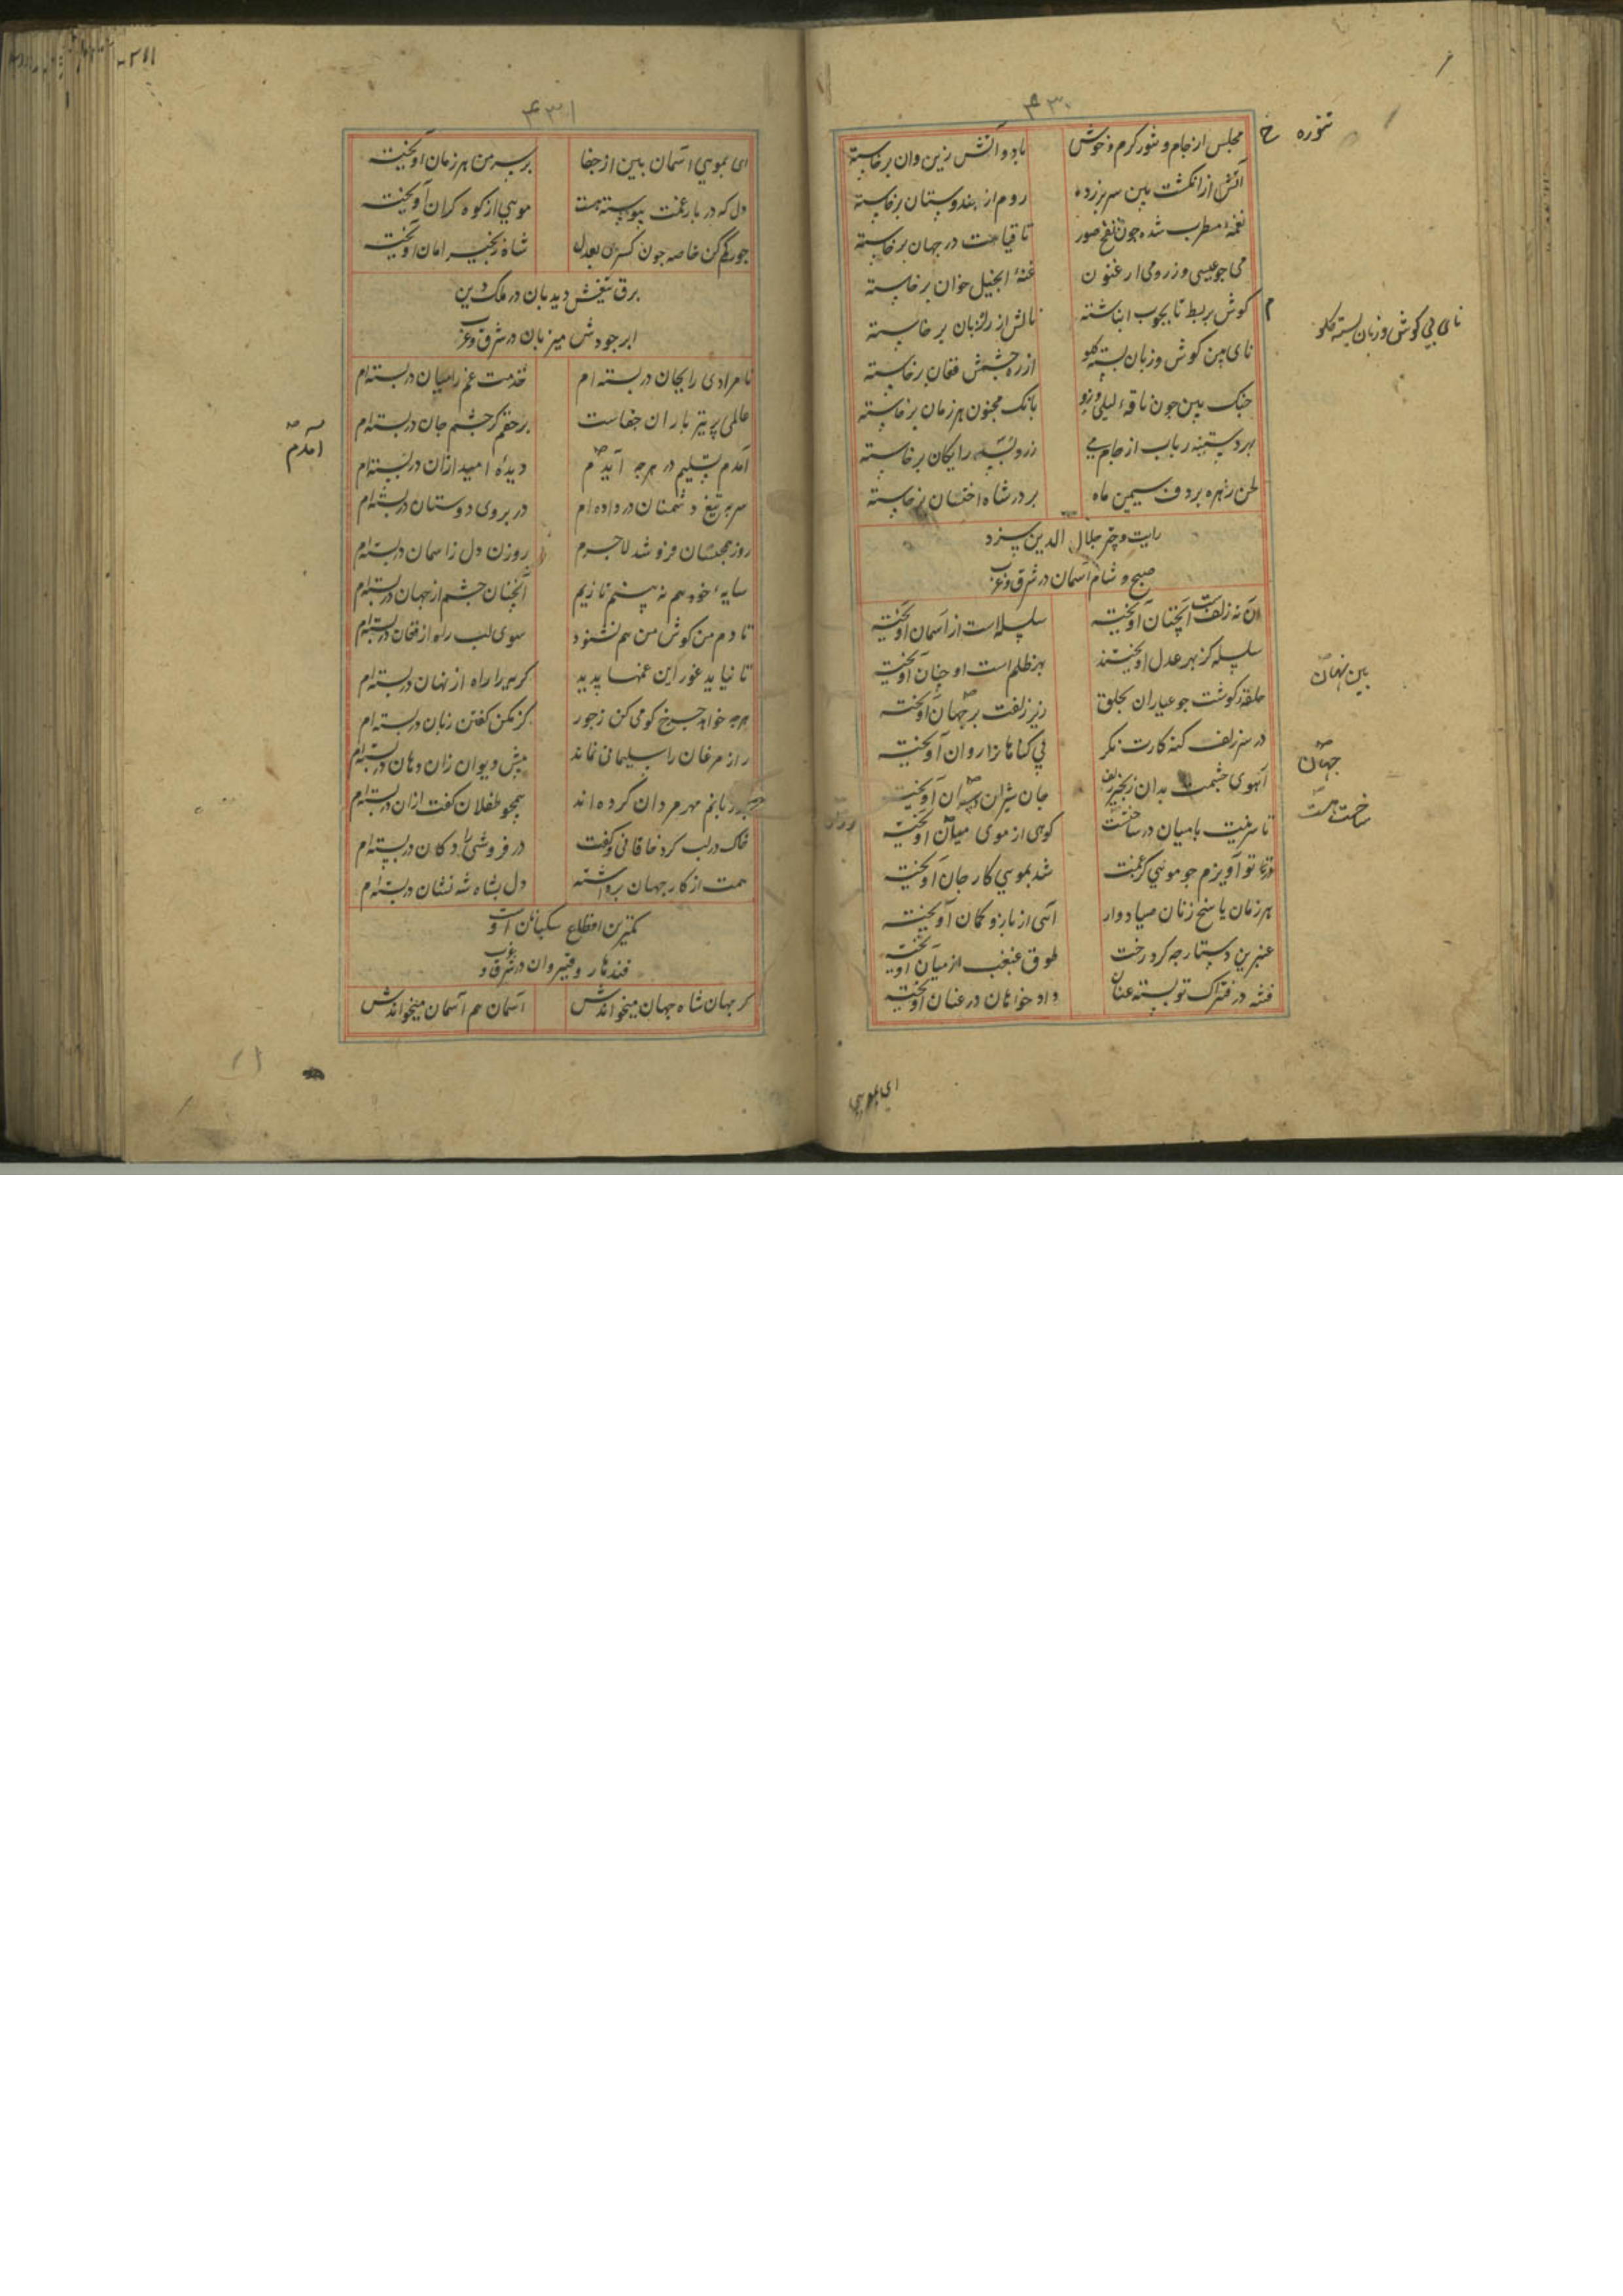 ۴۳۰
مجلس از جام و تنور کرم و خوش باد و آتش زین و آن برخاسته
آتش از انکشت بین سر برزده روم از هندوستان برخاسته
نغمهٔ مطرب شده چون نفخ صور تا قیامت در جهان برخاسته
می چو عیسی وز رومی ارغنون غنهٔ انجیل خوان برخاسته
کوش بربط تا بچوب انباشته نالش از راز زبان برخاسته
نای بین کوش وزبان بسته کلو از ره چشمش فغان برخاسته
چنک بین چون ناقهٔ لیلی وزو بانک مجنون هر زمان برخاسته
بهر دستینه رباب از جام می زر و بسد رایکان برخاسته
لحن زهره بر دف سیمین ماه بر در شاه اخستان برخاسته
رایت و چتر جلال الدین سزد
صبح و شام آسمان در شرق و غرب
ای نه زلفت آنچنان آویخته سلسله است از آسمان آویخته
سلسله کز بهر عدل آویختند بهر ظلم است او چنان آویخته
حلقهٔ کوشت چو عیاران بحلق زیر زلفت بر جهان آویخته
در سر زلف کنه کارت نکر بی کناها نرا روان آویخته
آهوی چشمت بدان زنجیر زلف جان شیران آویخته
تا سرینت بامیان درساخت کوهی از موی میان آویخته
در تو آویزم چو مویی کز غمت شد بمویی کار جان آویخته
هر زمان یاسج زنان صیادوار آسی از بازو کمان آویخته
عنبرین دستارچه کرد رخت طوق غبغب از میان آویخته
فتنه در فتراک تو بسته عنان داد خواهان در عنان آویخته
ای بمویی
نای بی کوش و زبان بسته کلو
بین نهان
جهان
۴۳۱
ای بمویی آسمان بین از جفا بر سر من هر زمان آویخته
دل که در بار غمت پیوسته است مویی از کوه کران آویخته
جور کم کن خاصه چون کسری بعدل شاه زنجیر امان آویخته
برق تیغش دیدبان در ملک و دین
ابر جودش میزبان در شرق و غرب
نامرادی را بجان دربسته ام خدمت غم را میان دربسته ام
عالمی پر تیر باران جفاست بر حقم کر چشم جان دربسته ام
آمدم تسلیم در هرچه آیدم دیدهٔ امید ازان دربسته ام
سر به تیغ دشمنان در داده ام در بروی دوستان دربسته ام
روز همجنسان فرو شد لاجرم روزن دل زآسمان دربسته ام
سایهٔ خود هم نه بینم تا زیم آنچنان چشم از جهان دربسته ام
تا دم من کوش من هم نشنود سوی لب راه از فغان دربسته ام
تا نیاید غور این غمها پدید کریه را راه از نهان دربسته ام
هرچه خواهد چرخ کو می کن ز جور کز مکن کفتن زبان دربسته ام
راز مرغان را سلیمانی نماند پیش دیوان زان دهان دربسته ام
بر زبانم مهر مردان کرده اند همچو طفلان کفت ازان دربسته ام
خاک در لب کرد خاقانی و کفت در فروشی را دکان دربسته ام
همت از کار جهان برداشته دل بشاه شه نشان دربسته ام
کمترین اقطاع سکبانان اوست
قندهار و قیروان در شرق و غرب
کر جهان شاه جهان میخواندش آسمان هم آسمان میخواندش
آمدم